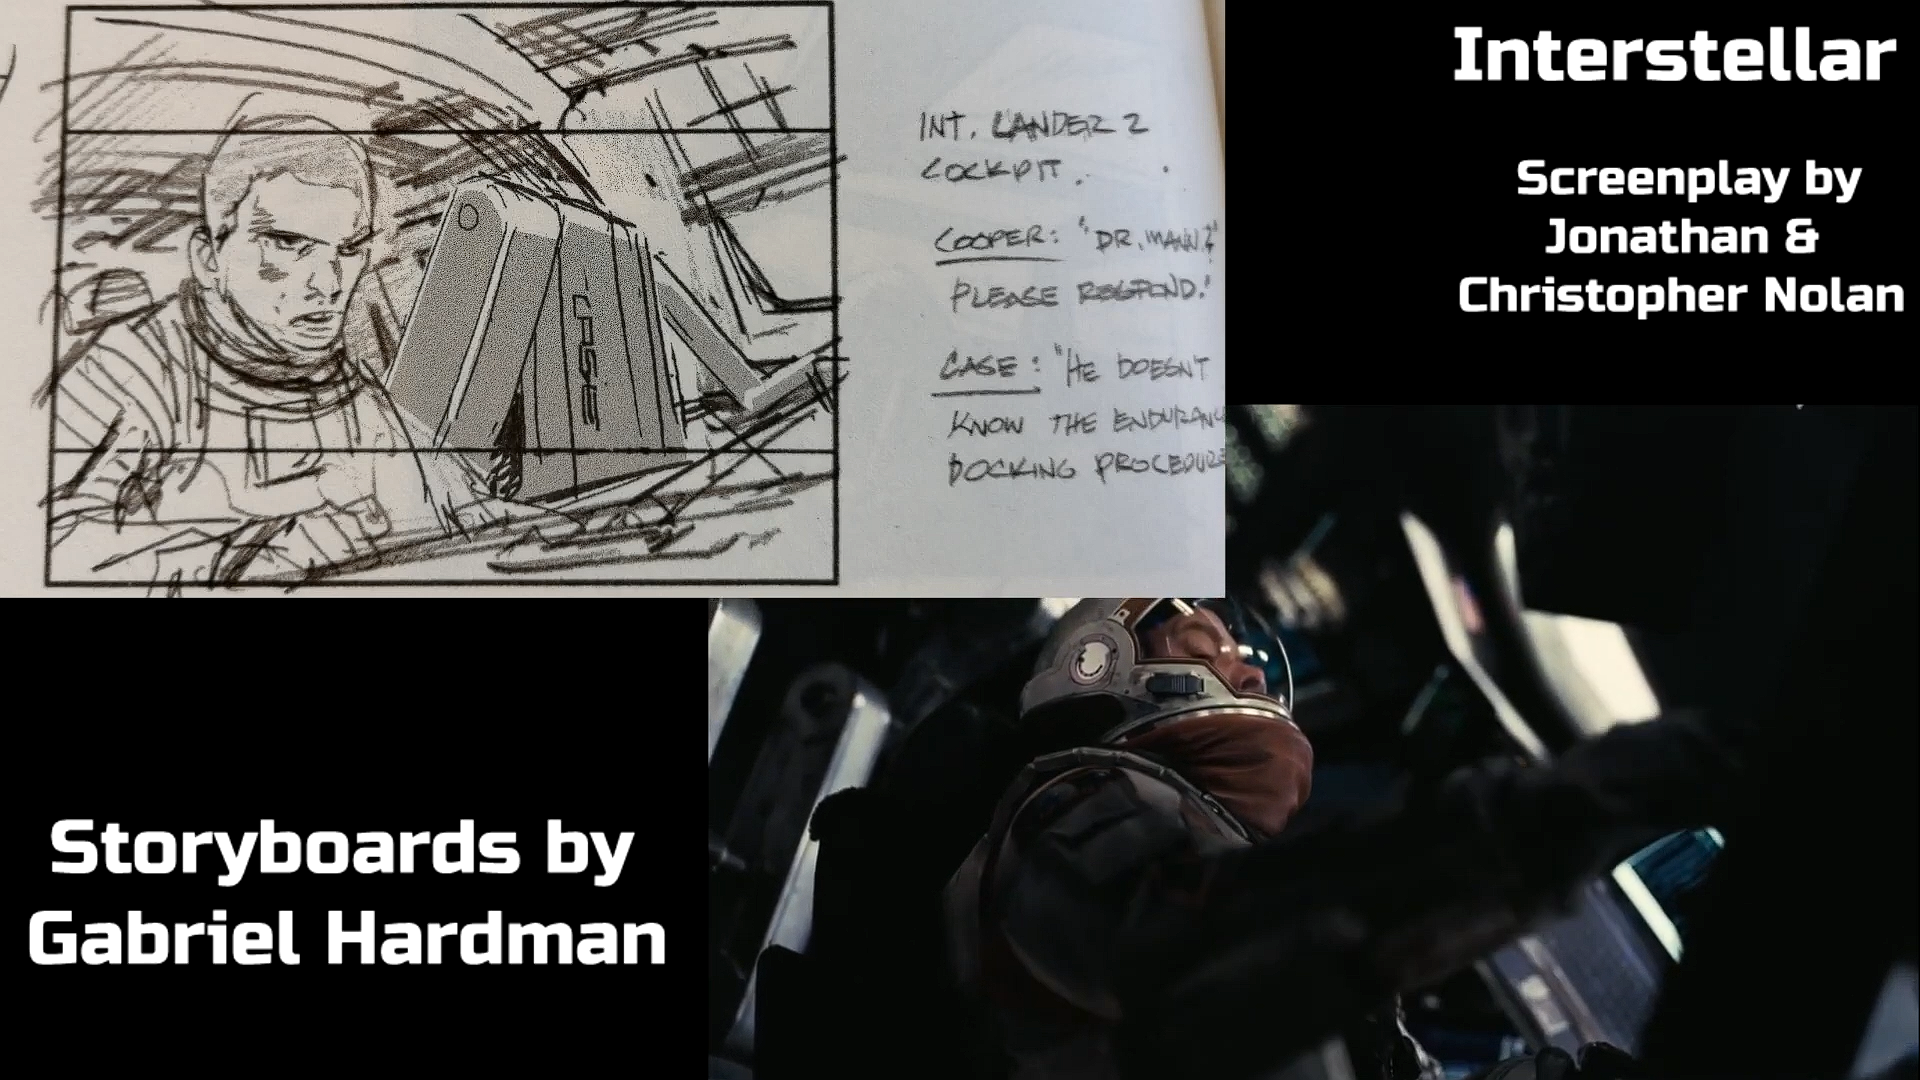 INT. LANDER 2
COCKPIT.
COOPER: "DR. MANN?
PLEASE RESPOND."
CASE: "HE DOESN'T
KNOW THE ENDURANC
DOCKING PROCEDURE
CASE
Interstellar
Screenplay by
Jonathan &
Christopher Nolan
Storyboards by
Gabriel Hardman